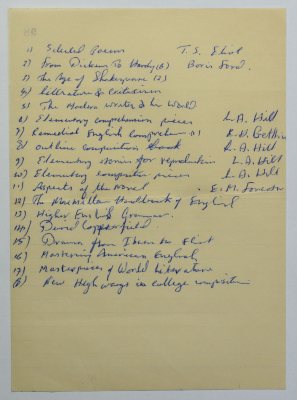 1) Selected Poems T. S. Eliot
2) From Dickens to Hardy (6) Boris Ford.
3) The Age of Shakespeare (2)
4) Literature & Criticism
5) The Modern writer & his World
6) Elementary comprehension pieces L. A. Hill
7) Remedial English Comprehen (1)
8) outline composition book L. A. Hill
9) Elementary stories for reproduction L. A. Hill
10) Elementary composition pieces L. A. Hill
11) Aspects of the Novel E. M. Forster
12) The Macmillan Handbook of English
13) Higher English Grammar
14) David Copperfield.
15) Drama from Ibsen to Eliot
16) Mastering American English
17) Masterpieces of World Literature
18) New Highways in college composition